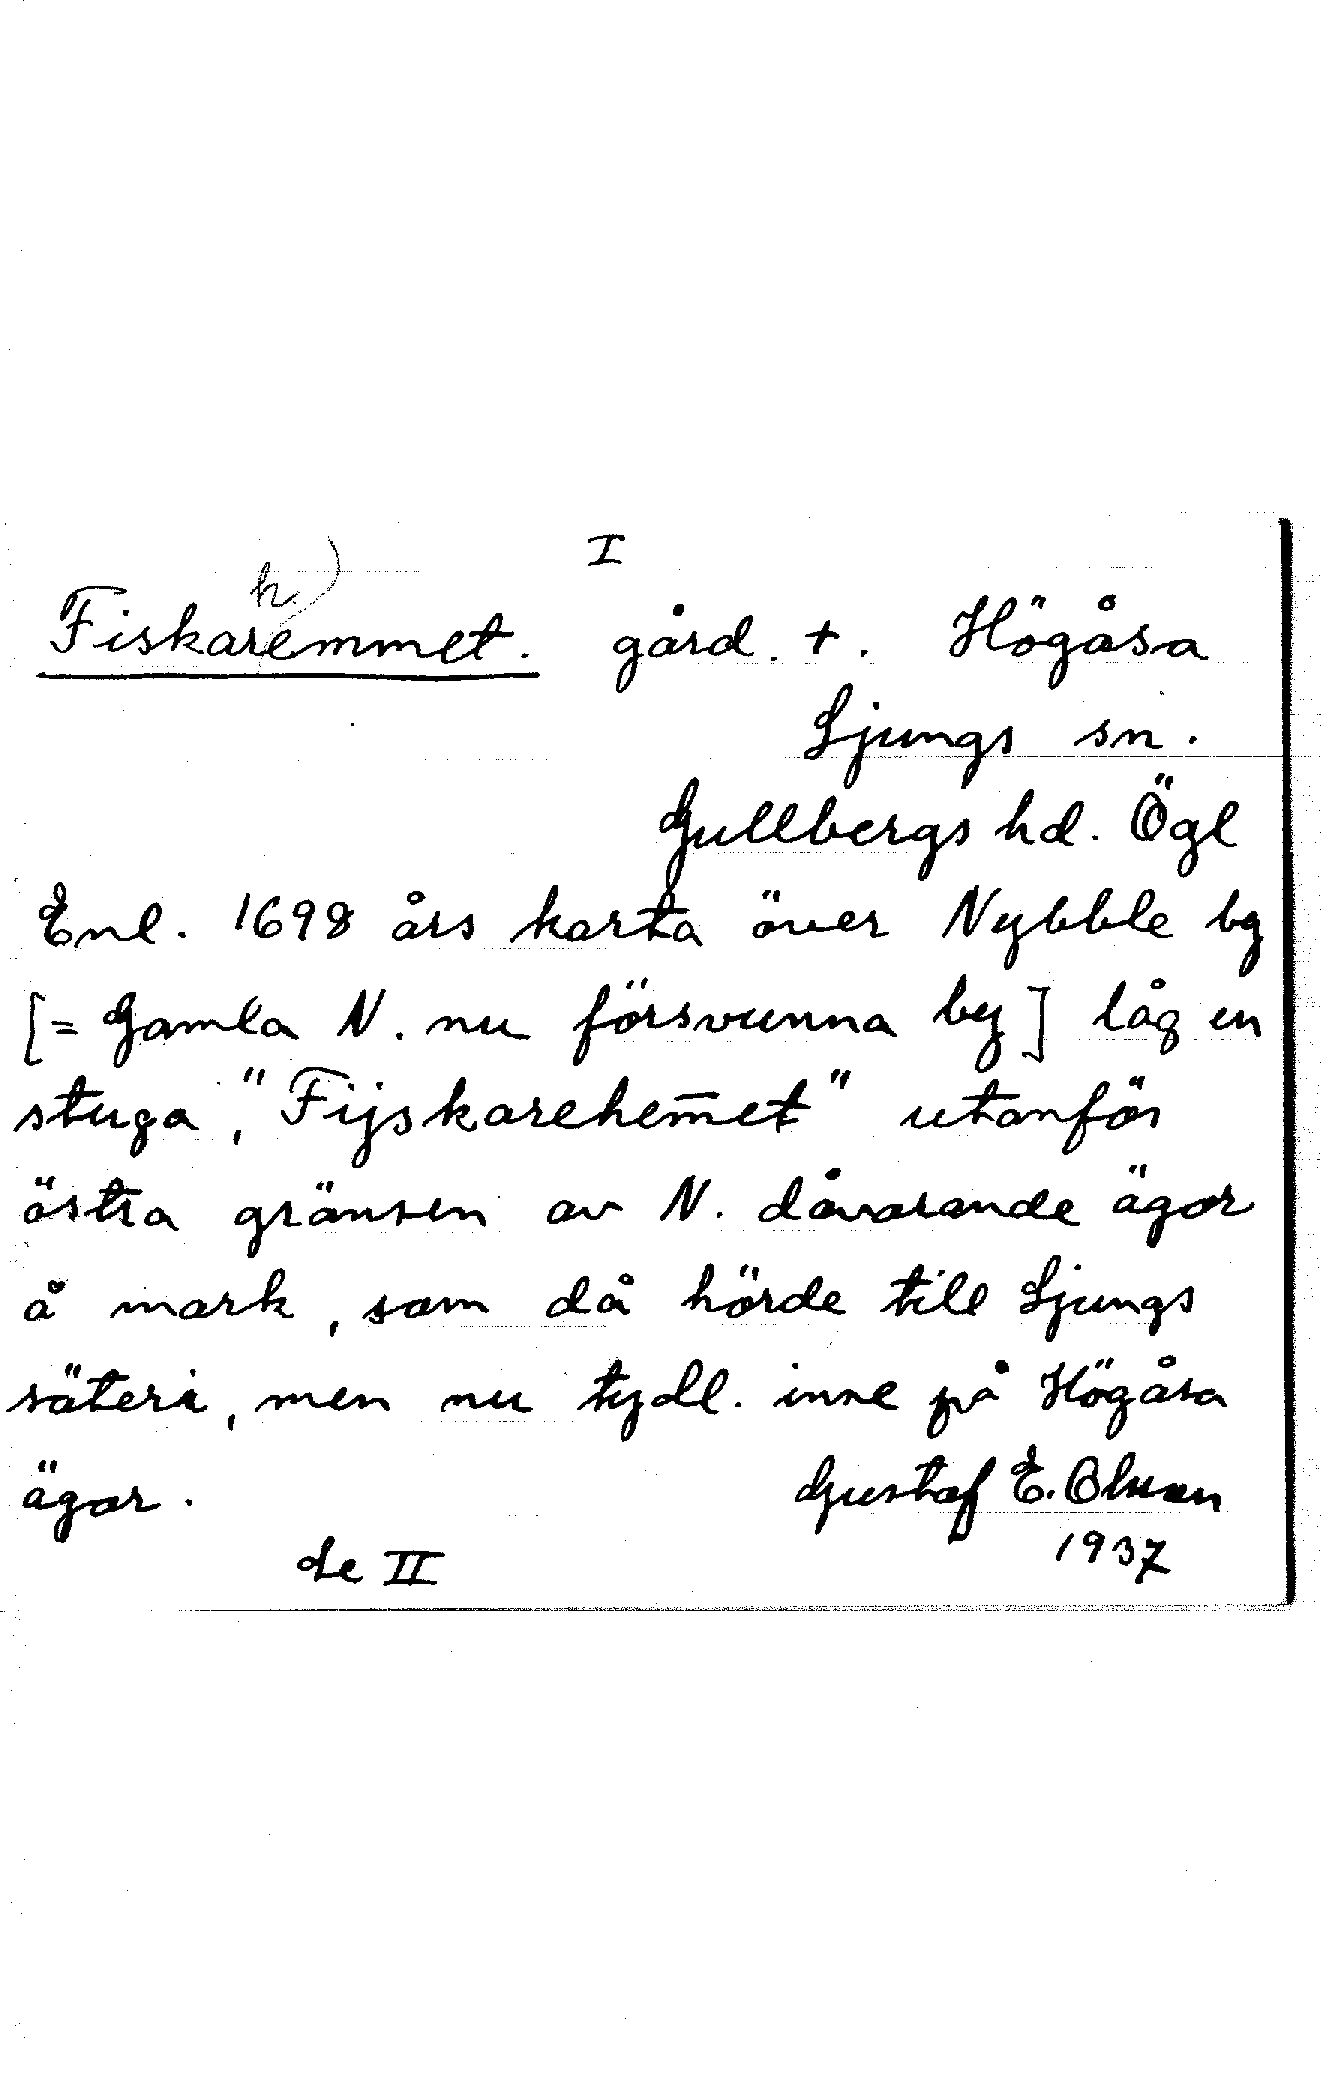 I
h)
Fiskaremmet. gård. +. Högåsa
Ljungs sn.
Gullbergs hd. Ögl
Enl. 1698 års karta över Nybble by
[= Gamla N. nu försvunna by] låg en
stuga, "Fijskarehem̅et" utanför
östra gränsen av N. dåvarande ägor
å mark, som då hörde till Ljungs
säteri, men nu tydl. inne på Högåsa
ägor.
Gustaf E. Olsson
1937
de II